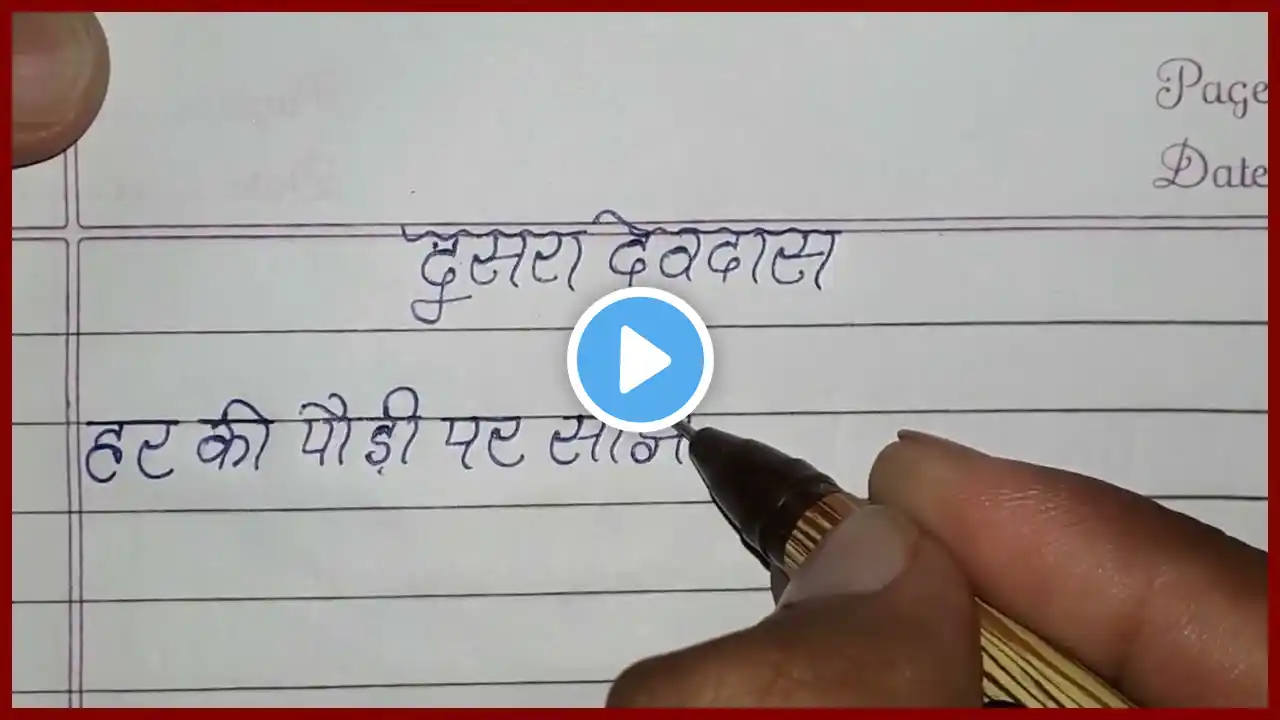 Page
Date
दुसरा देवदास
हर की पौड़ी पर